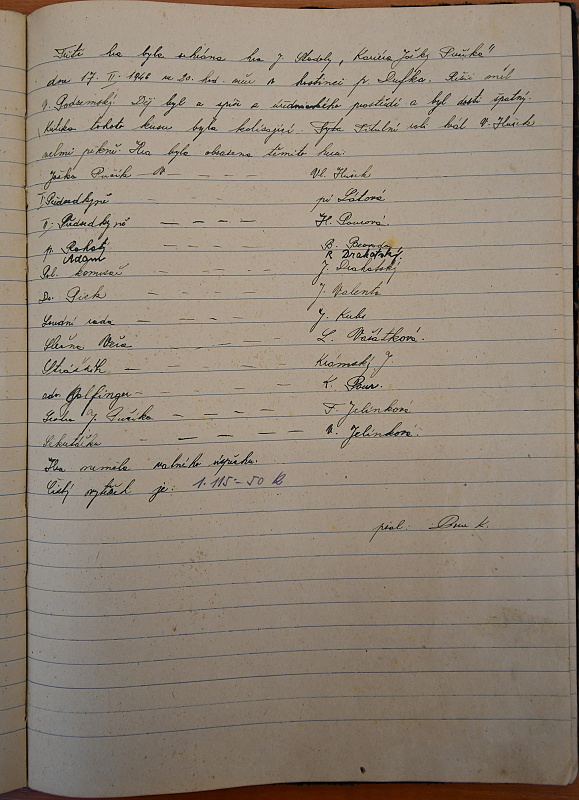 Tato hra byla sehrána hra J. Skodely „Kariéra Jožky Pučíka"
dne 17. II. 1946 ve 20. hod. več. v hostinci p. Dufka. Režii měl
V. Podzemský. Děj byl a spíše z prostředí a byl dosti špatný.
Kritika tohoto kusu byla kolísající. Titulní roli hrál V. Hušek
velmi pěkně. Hra byla obsazena těmito herci:
Jožka Pučík — — — — Vl. Hušek
I. Předsedkyně — — — — pí Látová
II. Předsedkyně — — — — H. Pourová.
p. Rohatý — — — — B. Beran
Adam R. Drahotský.
Pol. komisař — — — — J. Drahotský
Dr. — — — — J. Valenta
Soudní rada — — — — J. Kubů
Slečna Věra — — — — L. Vašátková.
Strážník — — — — Krámský J.
adv. Golfinger — — — — K. Pour.
Sestra J. Pučíka — — — — F. Jelínková
Sekretářka — — — — V. Jelínková.
Hra neměla valného úspěchu.
Čistý výtěžek je: 1.115-50 K
psal: Pour K.